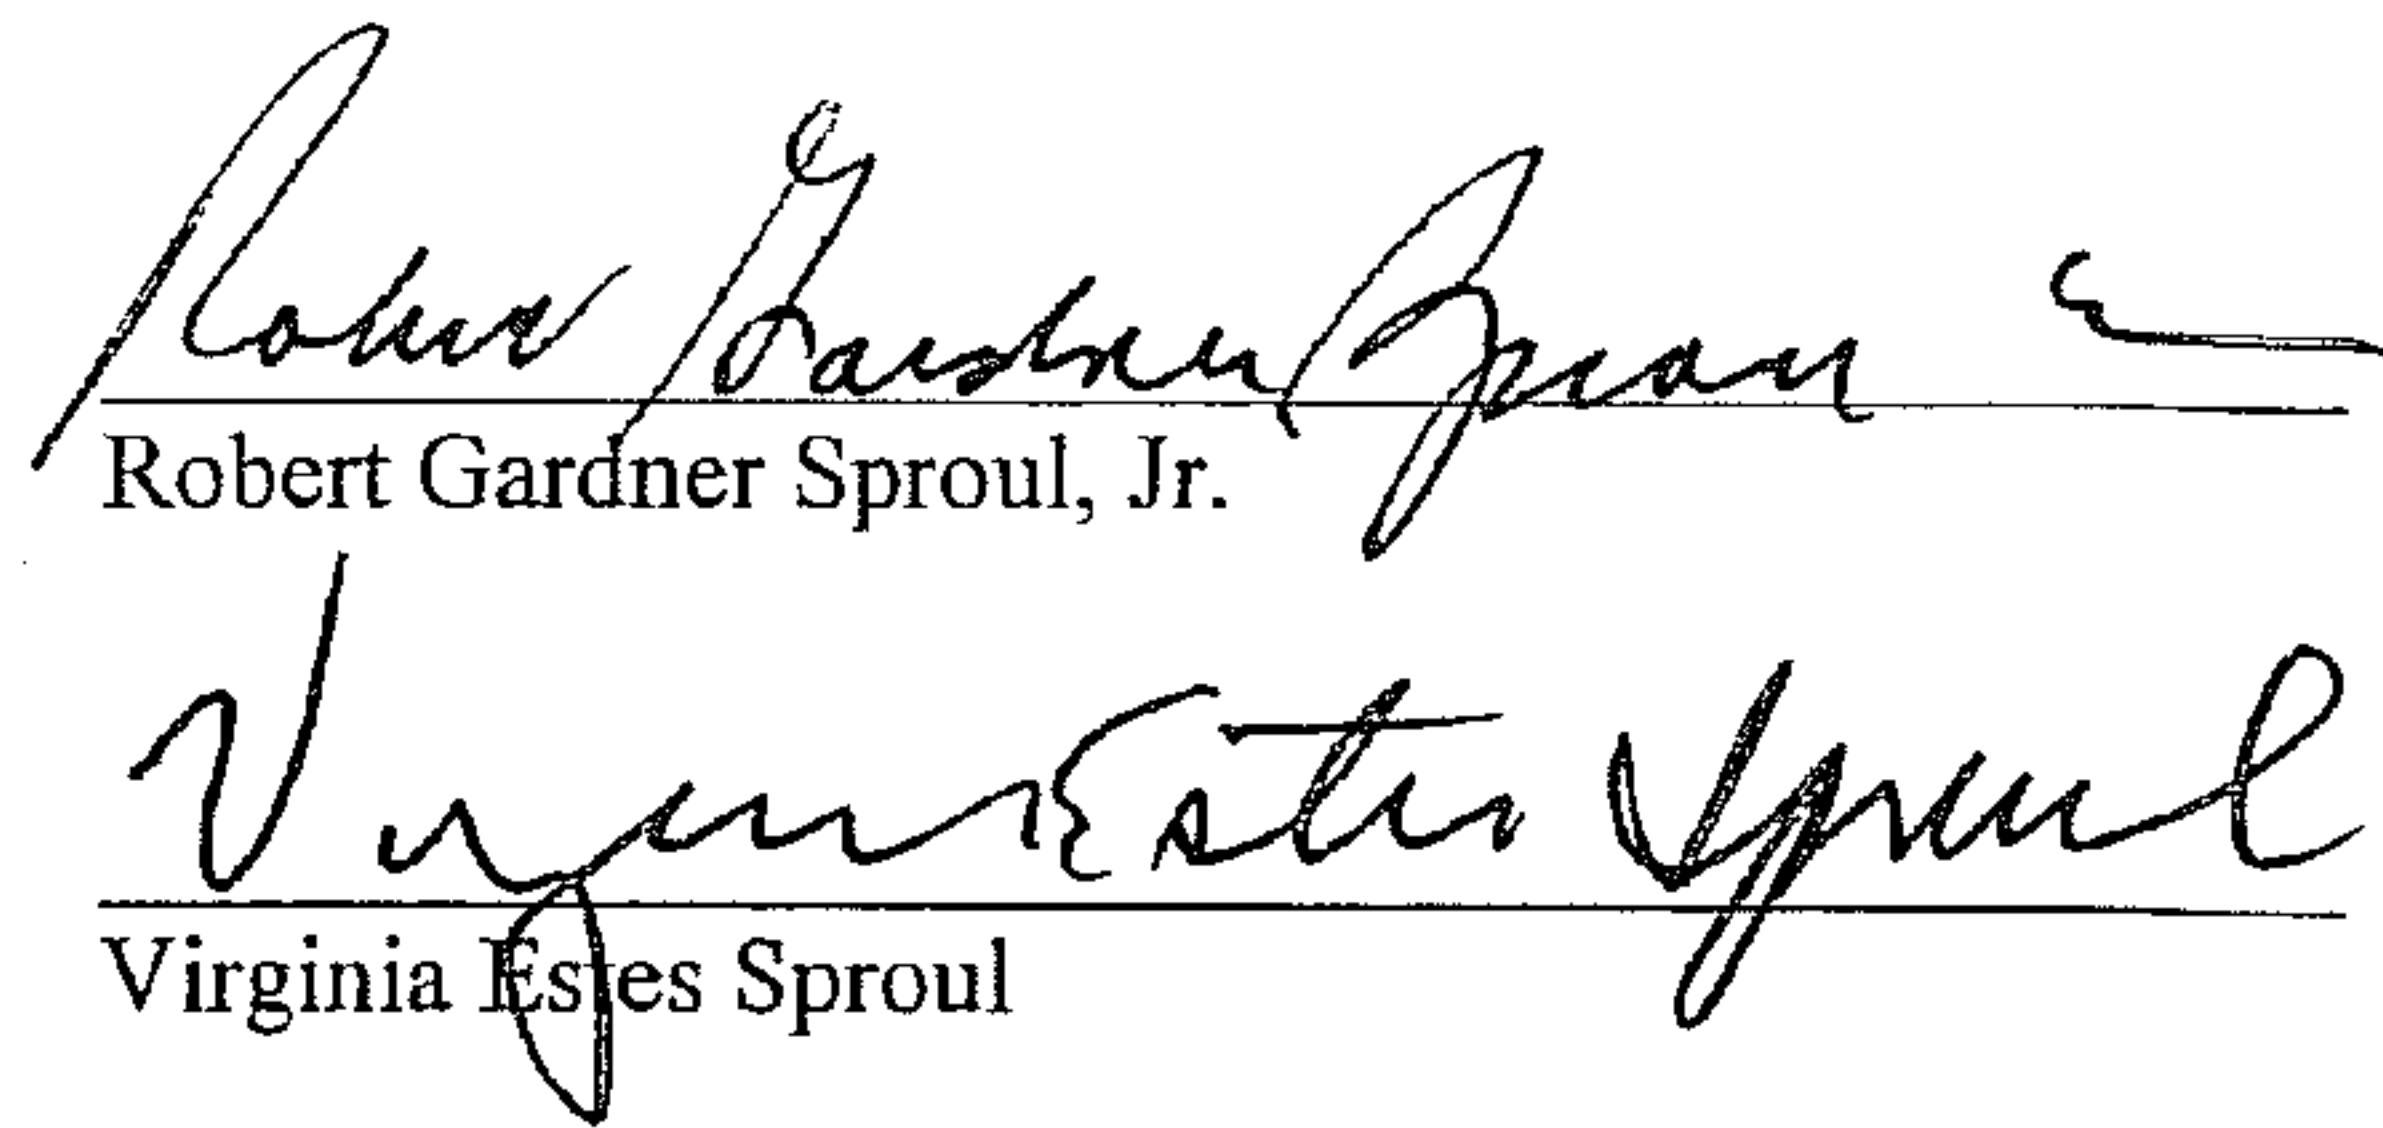 Robert Gardner Sproul
Robert Gardner Sproul, Jr.
Virginia Estes Sproul
Virginia Estes Sproul